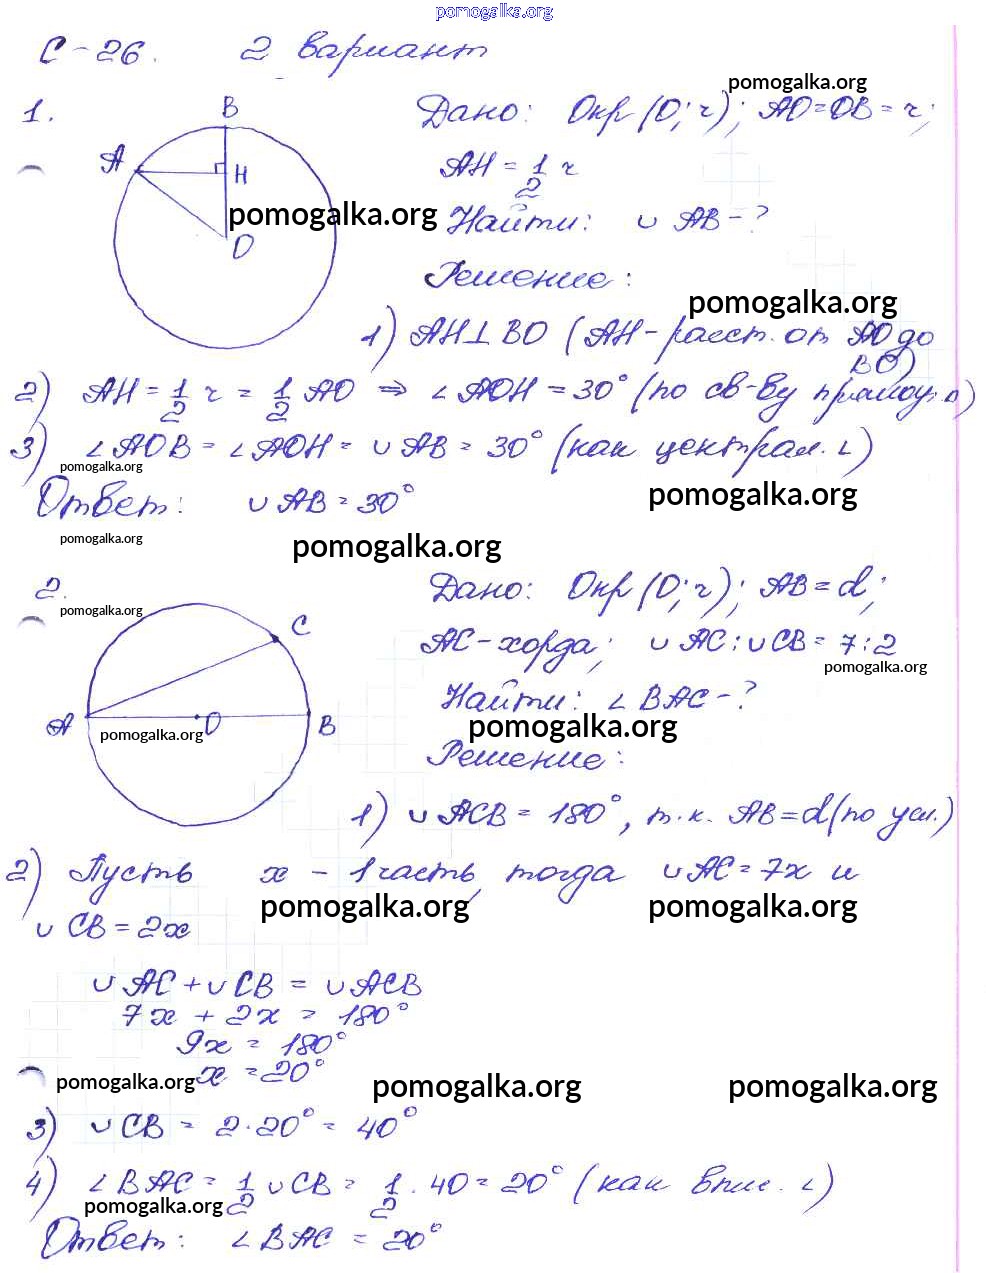 pomogalka.org
С-26. 2 вариант
pomogalka.org
1.
B
A
H
O
Дано: Окр (O; r); AO=OB=r;
AH = 1/2 r
pomogalka.org
Найти: ∪ AB - ?
Решение:
pomogalka.org
1) AH⊥BO (AH - расст. от AO до
BO)
2) AH = 1/2 r = 1/2 AO ⇒ ∠AOH = 30° (по св-ву прямоуг. Δ)
3) ∠AOB = ∠AOH = ∪AB = 30° (как централ. ∠)
pomogalka.org
Ответ: ∪AB = 30°
pomogalka.org
pomogalka.org
pomogalka.org
2.
pomogalka.org
C
A
O
B
pomogalka.org
Дано: Окр (O; r); AB = d;
AC - хорда; ∪AC : ∪CB = 7 : 2
pomogalka.org
Найти: ∠BAC - ?
pomogalka.org
Решение:
1) ∪ACB = 180°, т.к. AB = d (по усл.)
2) Пусть x - 1 часть, тогда ∪AC = 7x и
pomogalka.org pomogalka.org
∪CB = 2x
∪AC + ∪CB = ∪ACB
7x + 2x = 180°
9x = 180°
x = 20°
pomogalka.org pomogalka.org pomogalka.org
3) ∪CB = 2·20° = 40°
4) ∠BAC = 1/2 ∪CB = 1/2 · 40 = 20° (как впис. ∠)
pomogalka.org
Ответ: ∠BAC = 20°